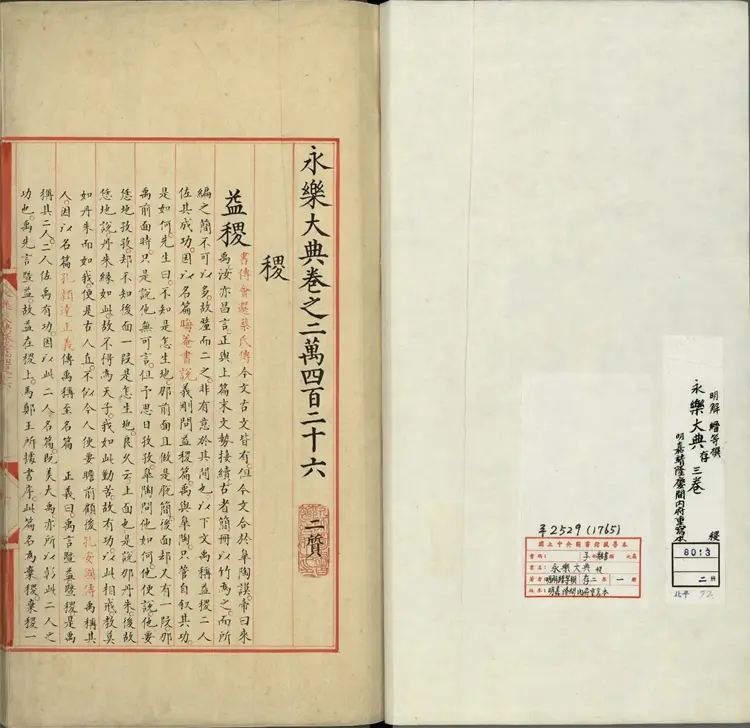 明解縉等撰
永樂大典存三卷
明嘉靖隆慶間內府重寫本
稷
8013
二冊
北平 72
平2529 (1765)
國立中央圖書館藏善本
書名：永樂大典
存二卷 一冊
永樂大典卷之二萬四百二十六 二質
稷
益稷 書傳會選蔡氏傳今文古文皆有但今文合於皐陶謨帝曰來
禹汝亦昌言正與上篇末文勢接續古者簡冊以竹為之而所
編之簡不可以多故釐而二之非有意於其間也以下文禹稱益稷二人
佐其成功因以名篇晦菴書說義剛問益稷篇禹與皐陶只管自敘其功
是如何先生曰不知是怎生地那前面且做是脫簡後面却又有一段那
禹前面時只是說他無可言但予思日孜孜皐陶問他如何他便說他要
恁地孜孜却不知後面一段是怎生地良久云上面也是說那丹朱後故
恁地說丹朱緣如此故不得為天子我如此勤苦故有功以此相戒教莫
如丹朱而如我便是古人直不似今人便要瞻前顧後孔安國傳禹稱其
人因以名篇孔穎達正義傳禹稱至名篇 正義曰禹言暨益暨稷是禹
稱其二人二人佐禹有功因以此二人名篇既美大禹亦所以彰此二人之
功也禹先言暨益故益在稷上馬鄭王所據書序此篇名為棄稷棄稷一